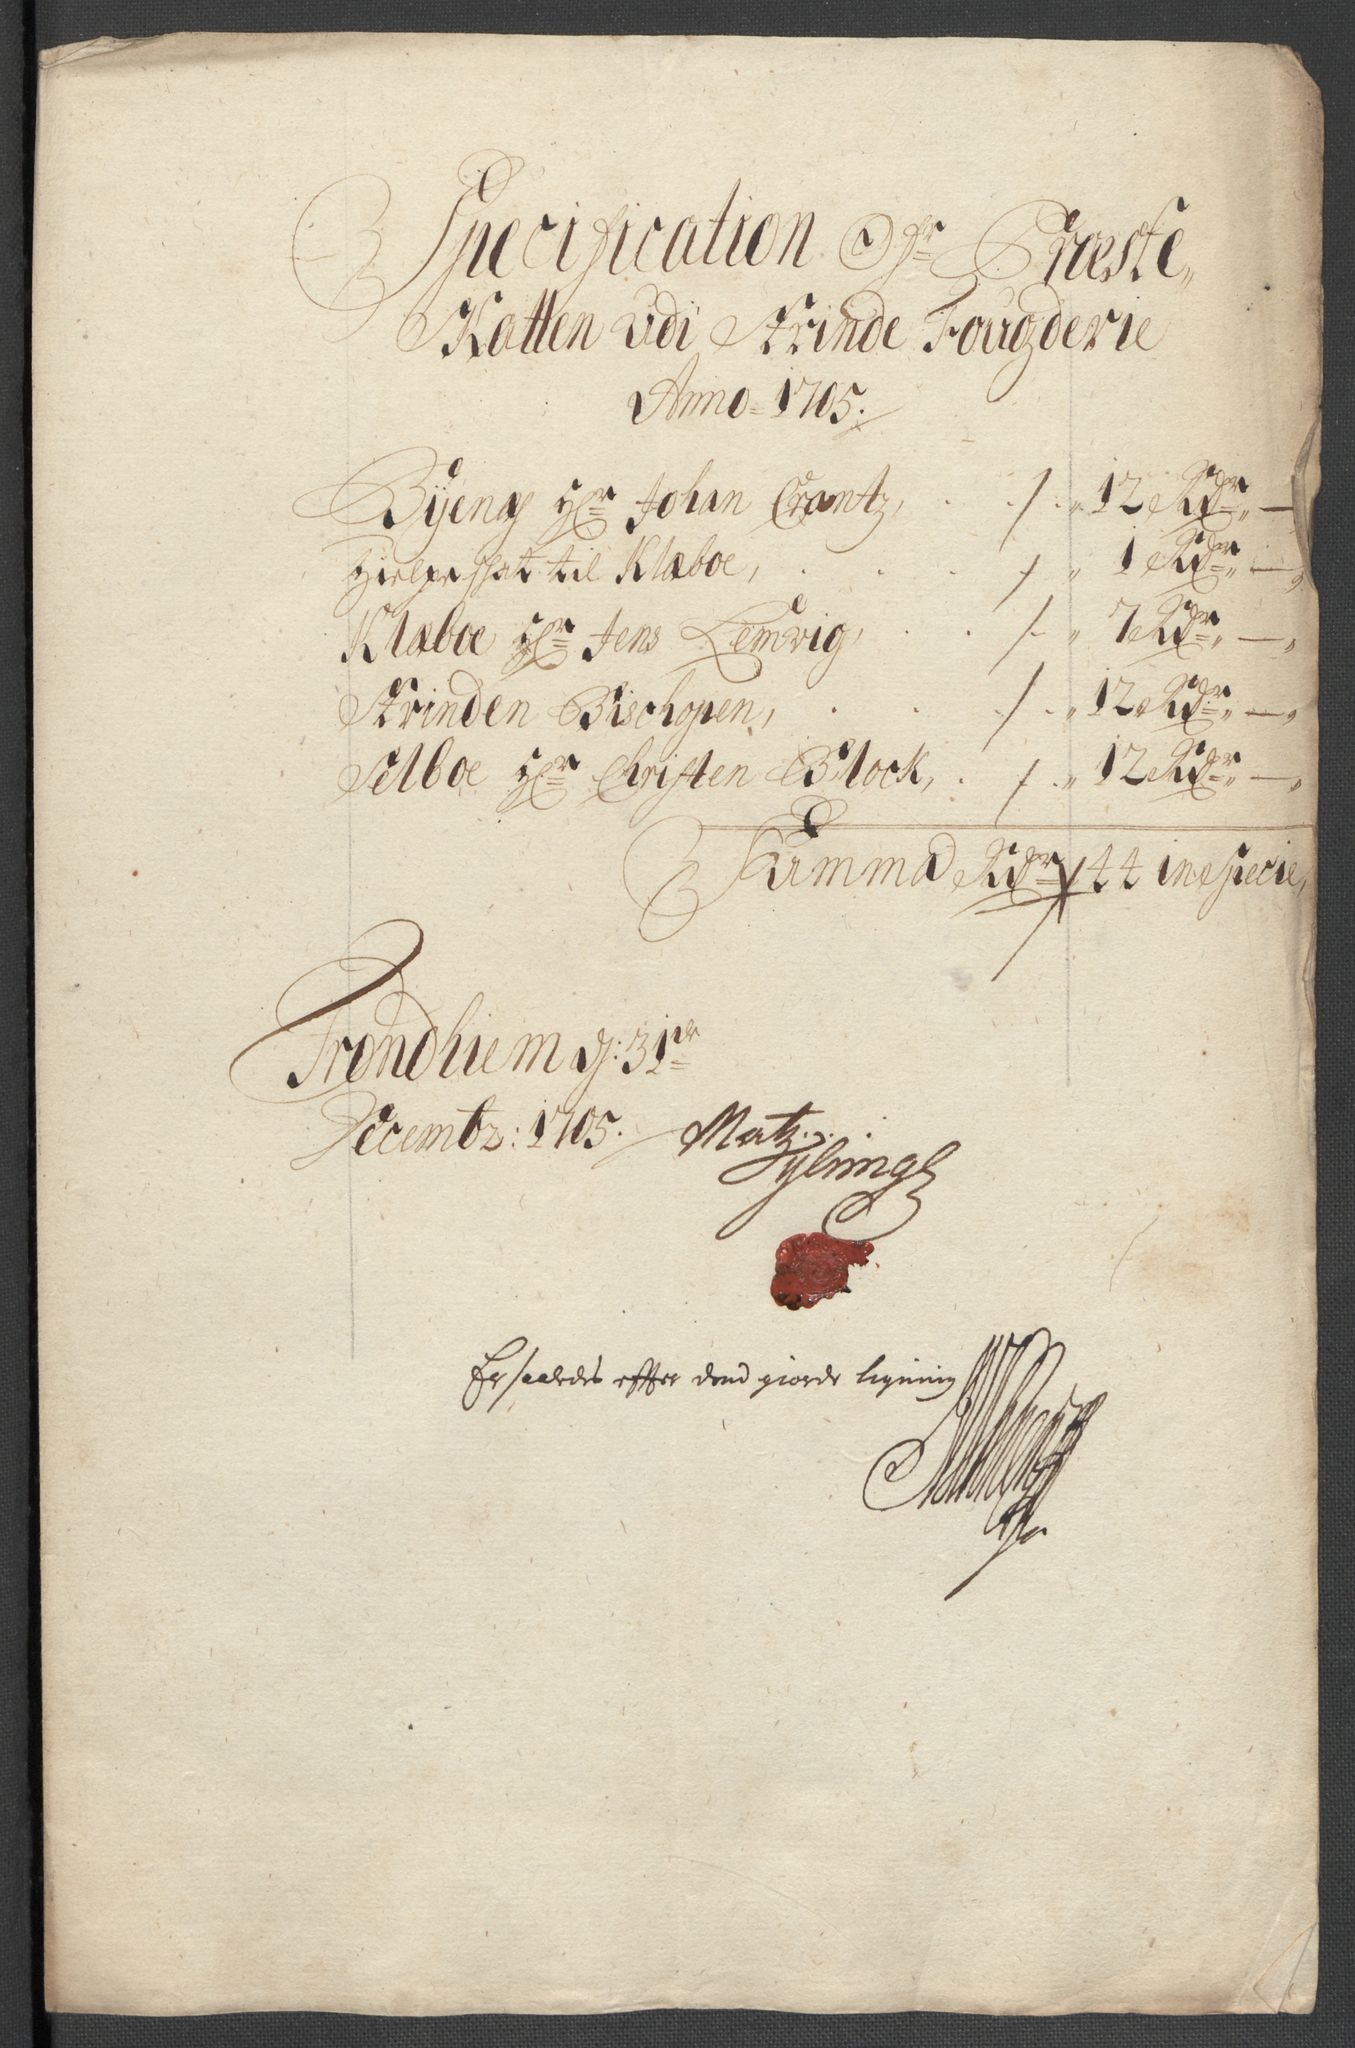 Specification Ofr Præste,,
Katten udi Strinde Fougderie
Anno 1705.
Byenes Hr Johan Crantz, . . / . „ 12 Rdr„ —
Hielpe skat til Klæboe, . . . / „ 1 Rdr„ —„
Klæboe Hr Jens Lemvig, . . / . „ 7 Rdr„ —„
Strinden Bischopen, . . . / . „ 12 Rdr„ —„
Selboe Hr Christen Block, . / . „ 12 Rdr„ —„
Summa Rdr 44 in Specie,
Trondhiem d: 31de
Decembr: 1705. Matz
Er saaledes effter dend giorde ligning